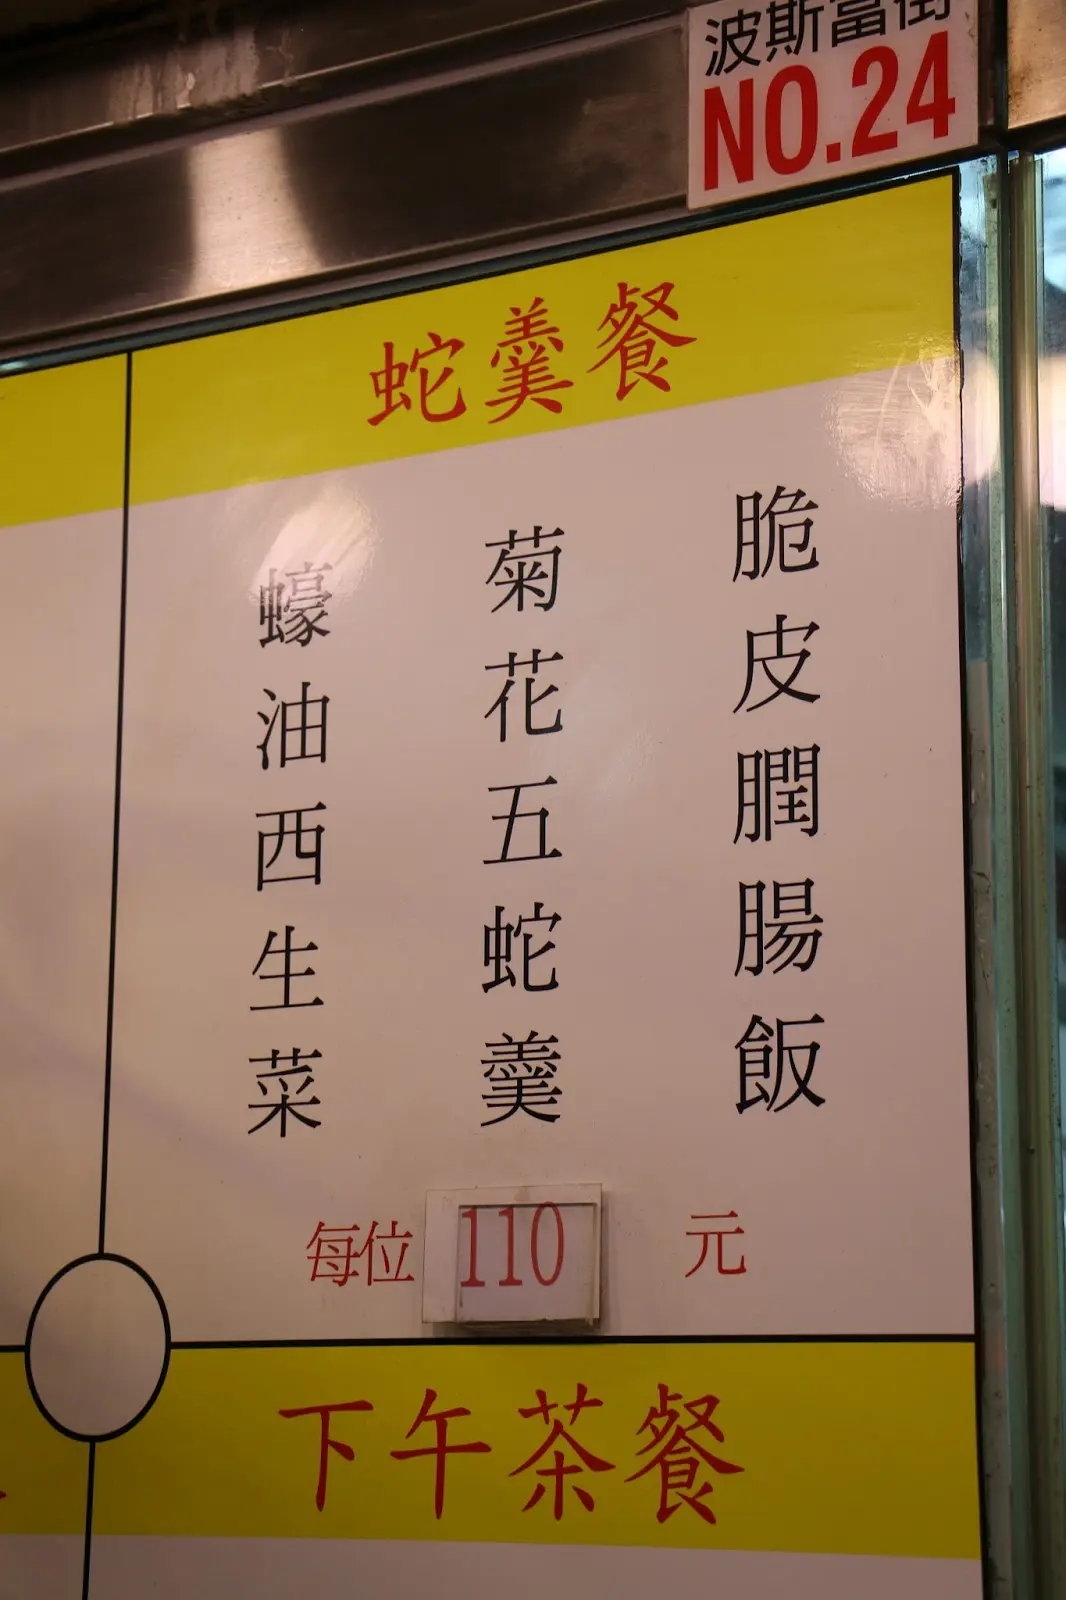 波斯富街
NO.24
蛇羹餐
脆皮膶腸飯
菊花五蛇羹
蠔油西生菜
每位 110 元
下午茶餐